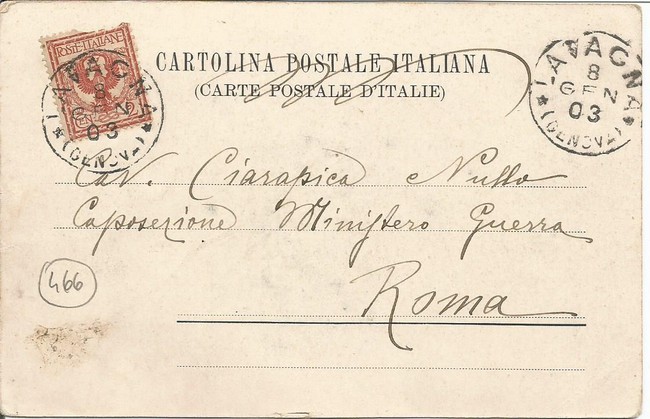 POSTE ITALIANE
LAVAGNA
8
GEN
03
* (GENOVA) *
CARTOLINA POSTALE ITALIANA
(CARTE POSTALE D'ITALIE)
LAVAGNA
8
GEN
03
* (GENOVA) *
Cav. Ciarapica Nullo
Caposezione Ministero Guerra
Roma
466